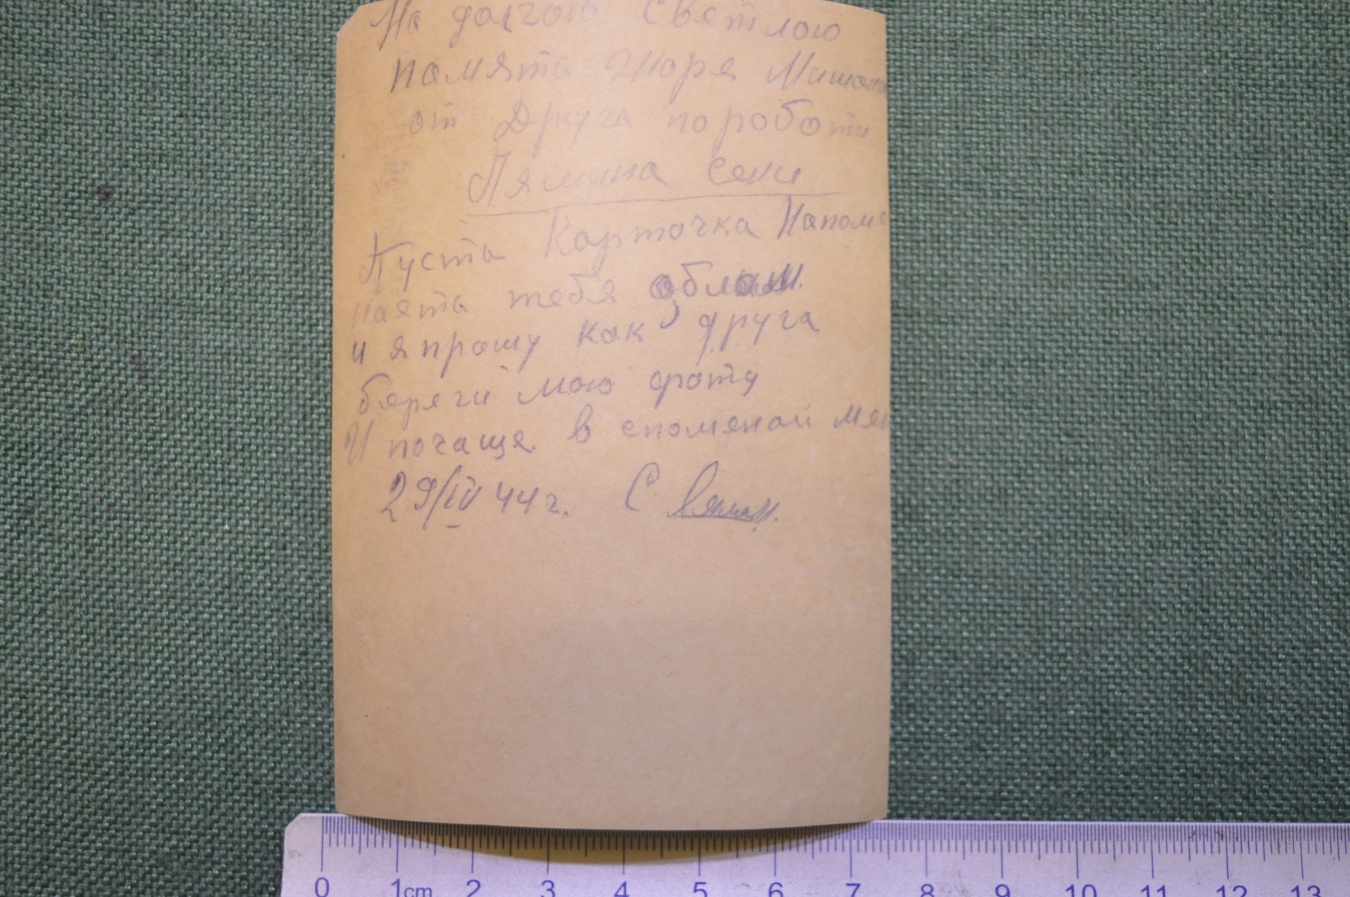 На долгою светлою
памята Жоре
от Друга поработи
Лямина Сени
Пуста Карточка Напоми
наята тебя облам.
и я прошу как друга
беряги мою фоту
И почаще в споменай мян
29/IV 44 г. С
0 1cm 2 3 4 5 6 7 8 9 10 11 12 13